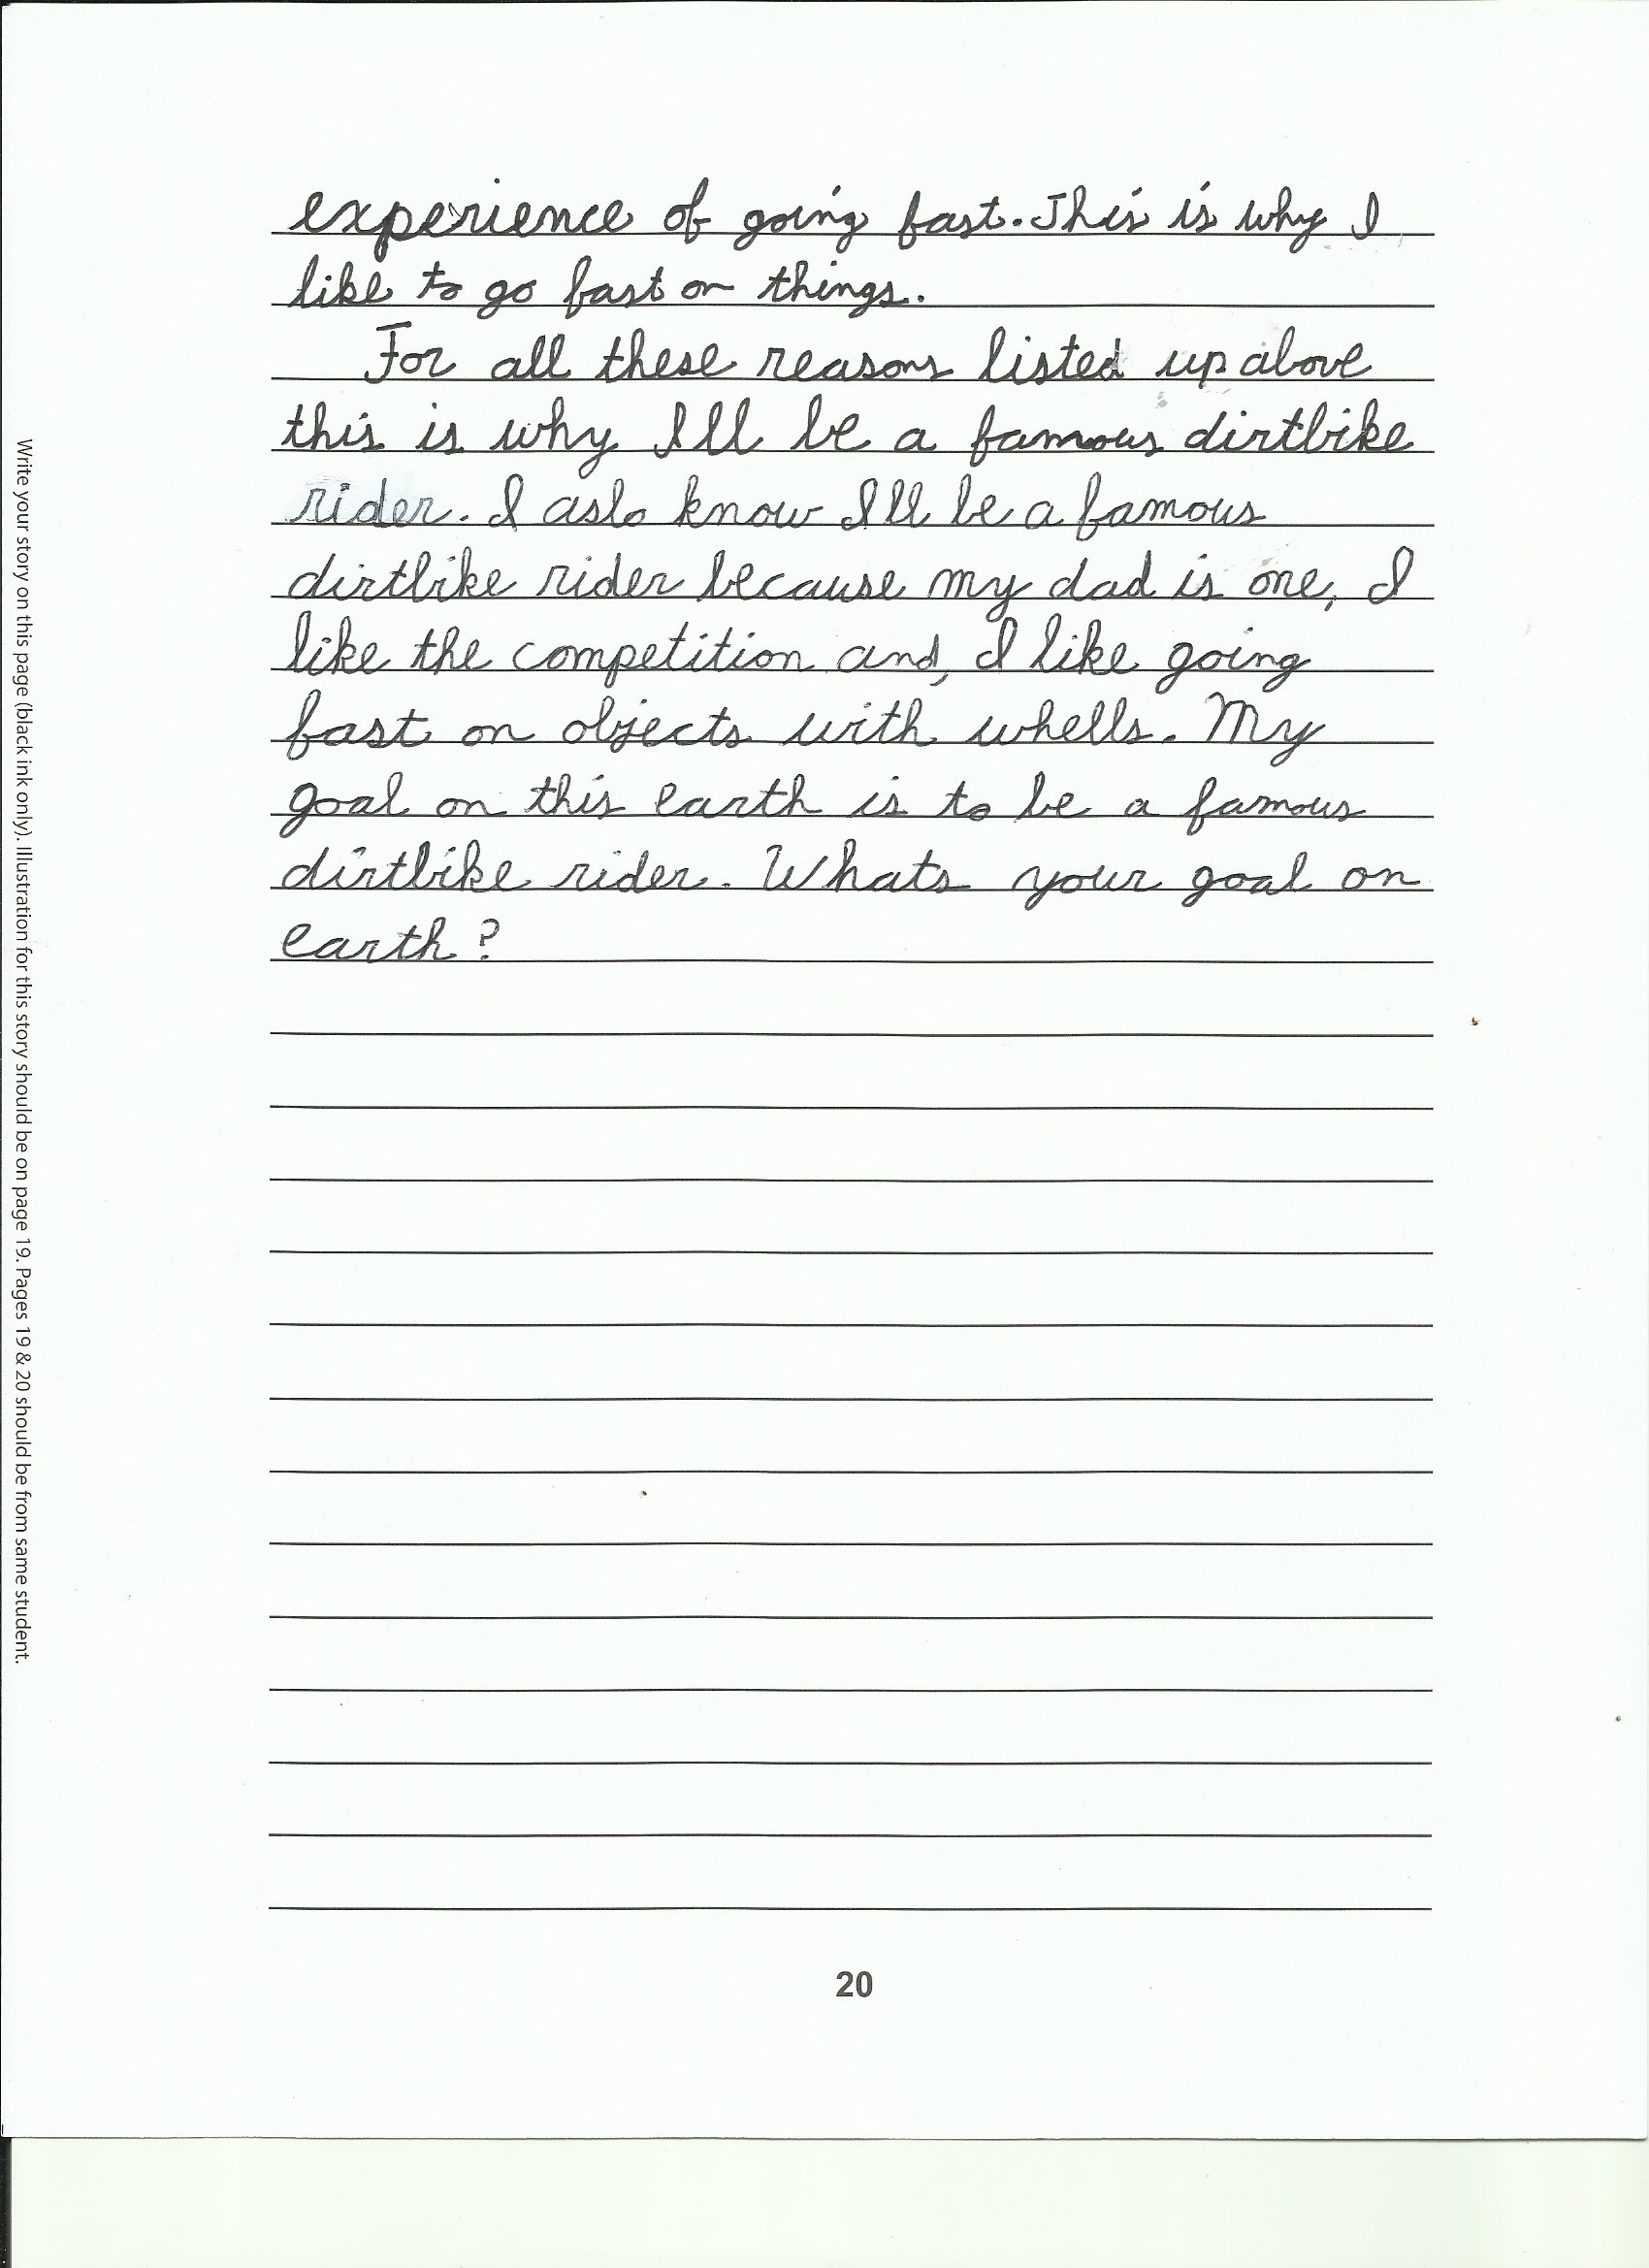 experience of going fast. This is why I
like to go fast on things.
For all these reasons listed up above
this is why Ill be a famous dirtbike
rider. I aslo know Ill be a famous
dirtbike rider because my dad is one, I
like the competition and, I like going
fast on objects with whells. My
goal on this earth is to be a famous
dirtbike rider. Whats your goal on
earth?
20
Write your story on this page (black ink only). Illustration for this story should be on page 19. Pages 19 & 20 should be from same student.